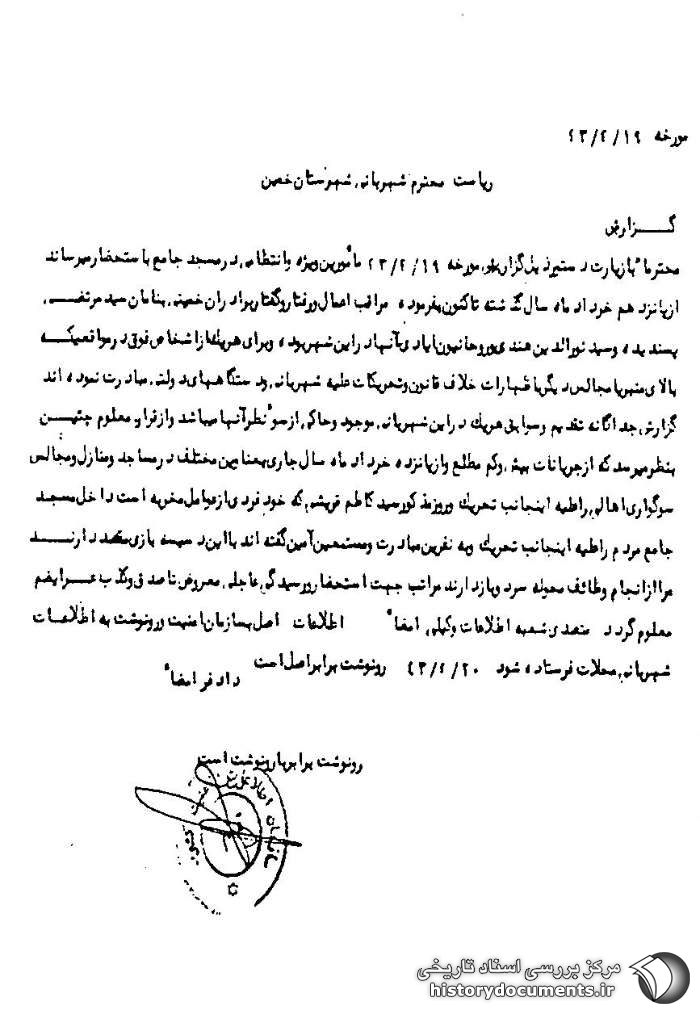 مورخه ۴۳/۴/۱۹
ریاست محترم شهربانی شهرستان خمین
گــزارش
محترماً بازیارت دستور ذیل گزارش مورخه ۴۳/۴/۱۹ مأمورین ویژه وانتظامی در مسجد جامع باستحضار میرساند
از پانزدهم خرداد ماه سال گذشته تاکنون مراقب اعمال ورفتار وگفتار برادران خمینی بنامان سید مرتضی
پسندیده وسید نورالدین هندی وروحانیون ایادی آنها دراین شهر بوده وبرای هریک از اشخاص فوق در مواقعیکه
بالای منبر یا مجالس دیگر باظهارات خلاف قانون وتحریکات علیه شهربانی ودستگاههای دولتی مبادرت نموده اند
گزارش جداگانه تقدیم وسوابق هریک دراین شهربانی موجود وحاکی از سوءنظر آنها میباشد واز قرار معلوم چنین
بنظر میرسد که از جریانات بیش وکم مطلع واز پانزده خرداد ماه سال جاری بعناوین مختلف در مساجد ومنازل ومجالس
سوگواری اهالی را علیه اینجانب تحریک وروز مذکور سید کاظم قریشی که خود فردی از عوامل مخربه است داخل مسجد
جامع مردم را علیه اینجانب تحریک وبه نفرین مبادرت ومستمعین آمین گفته اند با این دسیسه بازی متصدد دارنــد
مرا از انجام وظائف محوله سرد وبازدارند مراتب جهت استحضار ورسیدگی عاجلی معروض تا صدق وکذب عــرایضم
معلوم گردد متصدی شعبه اطلاعات وکیلی امضاء اطلاعات اصل بسازمان امنیت ورونوشت به اطلاعــات
شهربانی محلات فرستاده شود ۴۳/۴/۲۰ رونوشت برابر اصل است
دادفر امضاء
رونوشت برابر با رونوشت است
مرکز بررسی اسناد تاریخی
historydocuments.ir